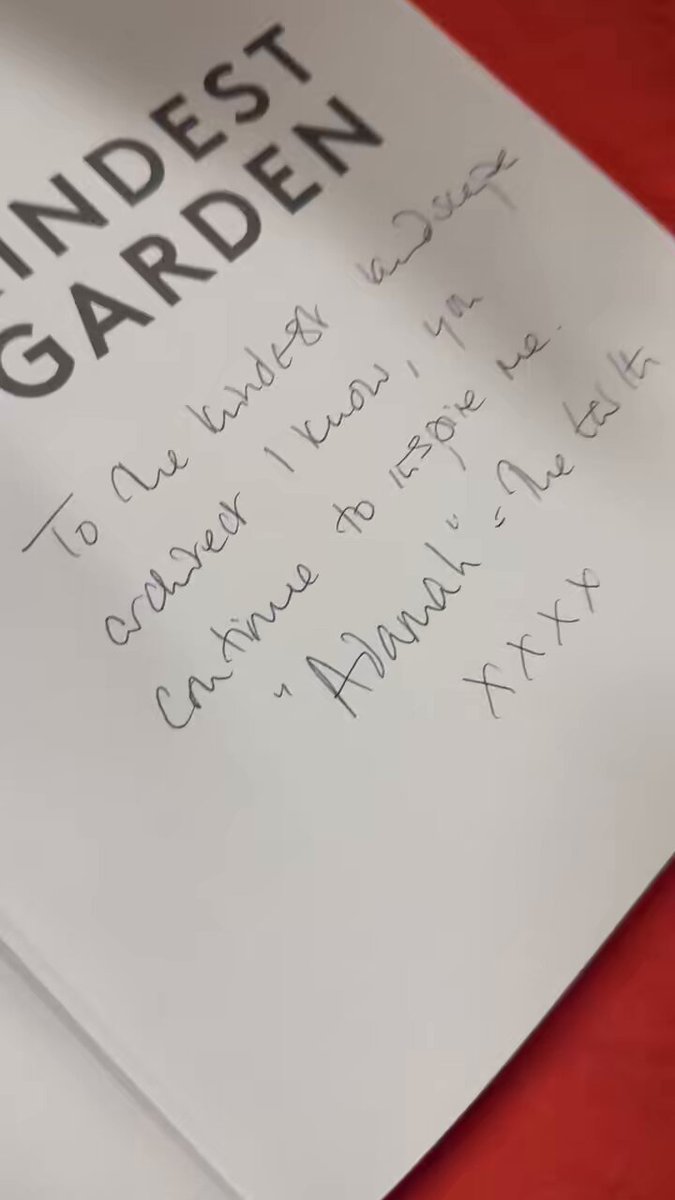 INDEST
GARDEN
To the kindest landscape
architect I know, you
continue to inspire me.
"Adamah" = The Earth
xxxx